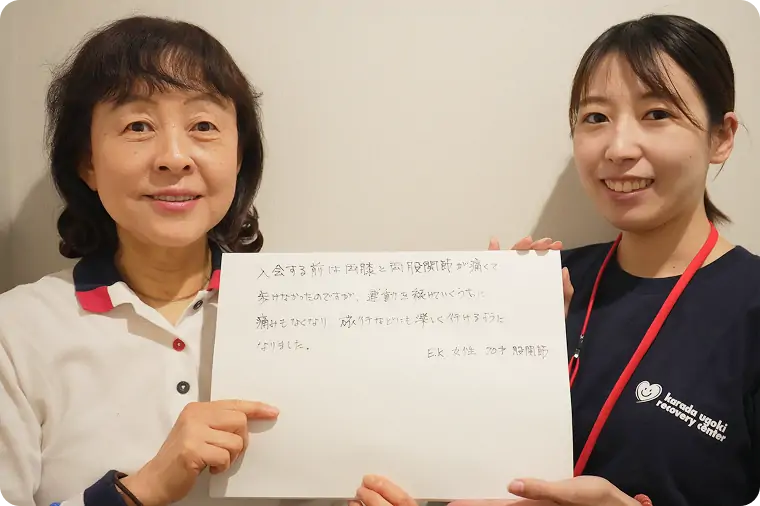 入会する前は両膝と両股関節が痛くて
歩けなかったのですが、運動を続けていくうちに
痛みもなくなり 旅行などにも楽しく行けるように
なりました。
E.K 女性 70才 股関節
karada ugoki
recovery center